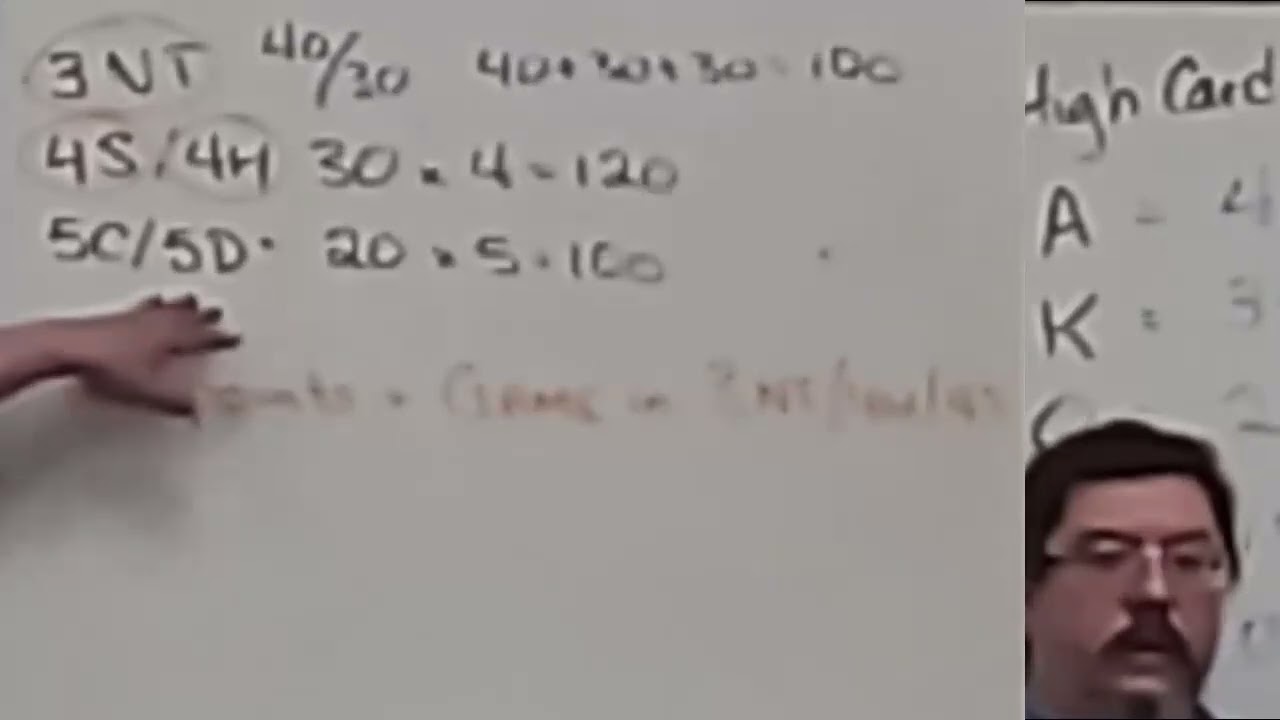 3NT 40/30 40+30+30=100
4S/4H 30 × 4 = 120
5C/5D 20 × 5 = 100
Game in 3NT/
High Card
A - 4
K = 3
2